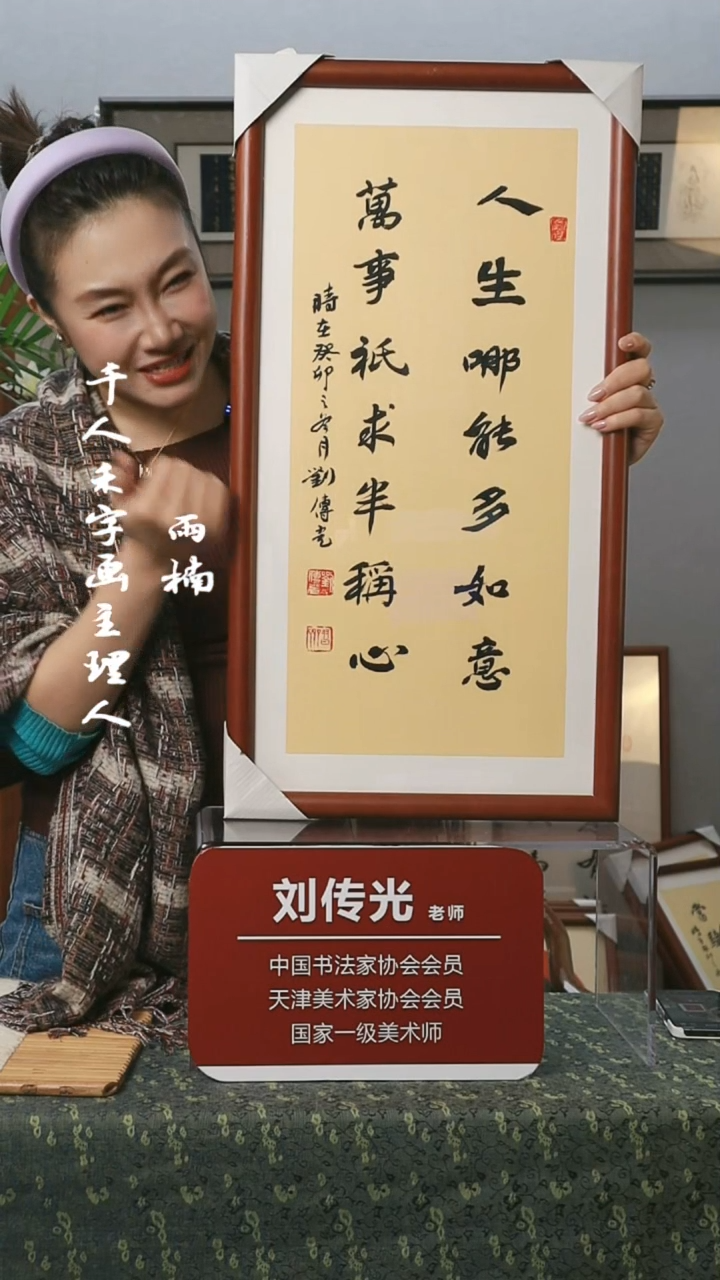 人生哪能多如意
萬事祇求半稱心
時在癸卯之冬月劉傳光
雨楠
千人禾字画主理人
刘传光 老师
中国书法家协会会员
天津美术家协会会员
国家一级美术师